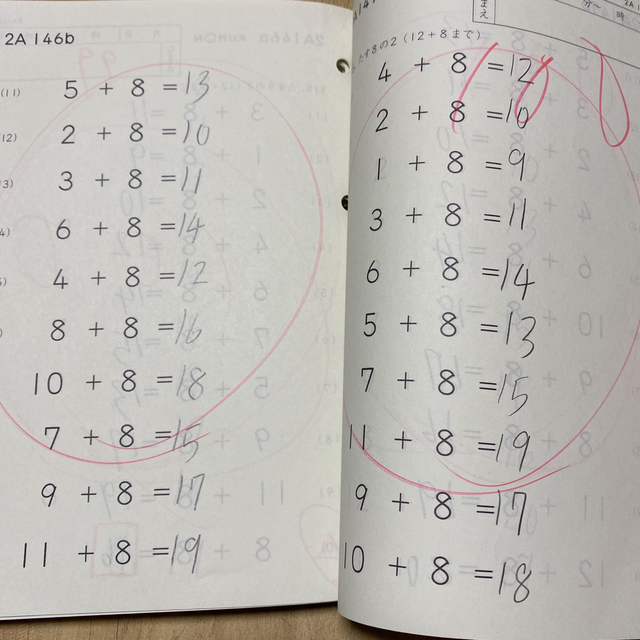 2A 146b
(11) 5 + 8 = 13
(12) 2 + 8 = 10
3 + 8 = 11
6 + 8 = 14
4 + 8 = 12
8 + 8 = 16
10 + 8 = 18
7 + 8 = 15
9 + 8 = 17
11 + 8 = 19
2A
まえ
分〜 時
たす8の2(12+8まで)
4 + 8 = 12
2 + 8 = 10
1 + 8 = 9
3 + 8 = 11
6 + 8 = 14
5 + 8 = 13
7 + 8 = 15
11 + 8 = 19
9 + 8 = 17
10 + 8 = 18